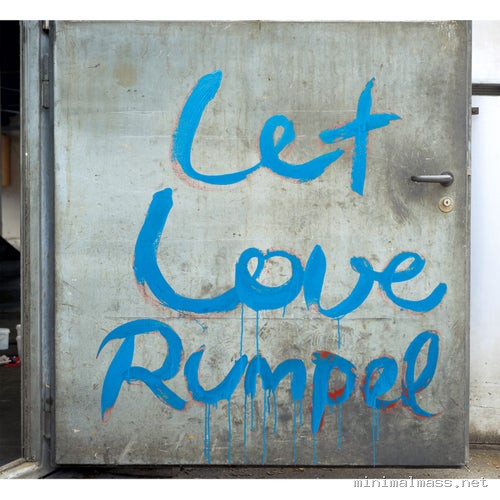 Let
Love
Rumpel
minimalmass.net